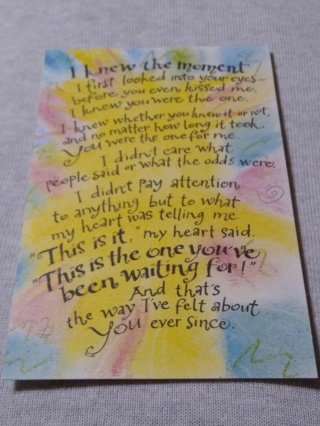 I knew the moment
I first looked into your eyes—
before you even kissed me,
I knew you were the one.
I knew whether you knew it or not,
and no matter how long it took,
you were the one for me.
I didn't care what
people said or what the odds were.
I didn't pay attention
to anything but to what
my heart was telling me.
"This is it," my heart said.
"This is the one you've
been waiting for!"
And that's
the way I've felt about
you ever since.